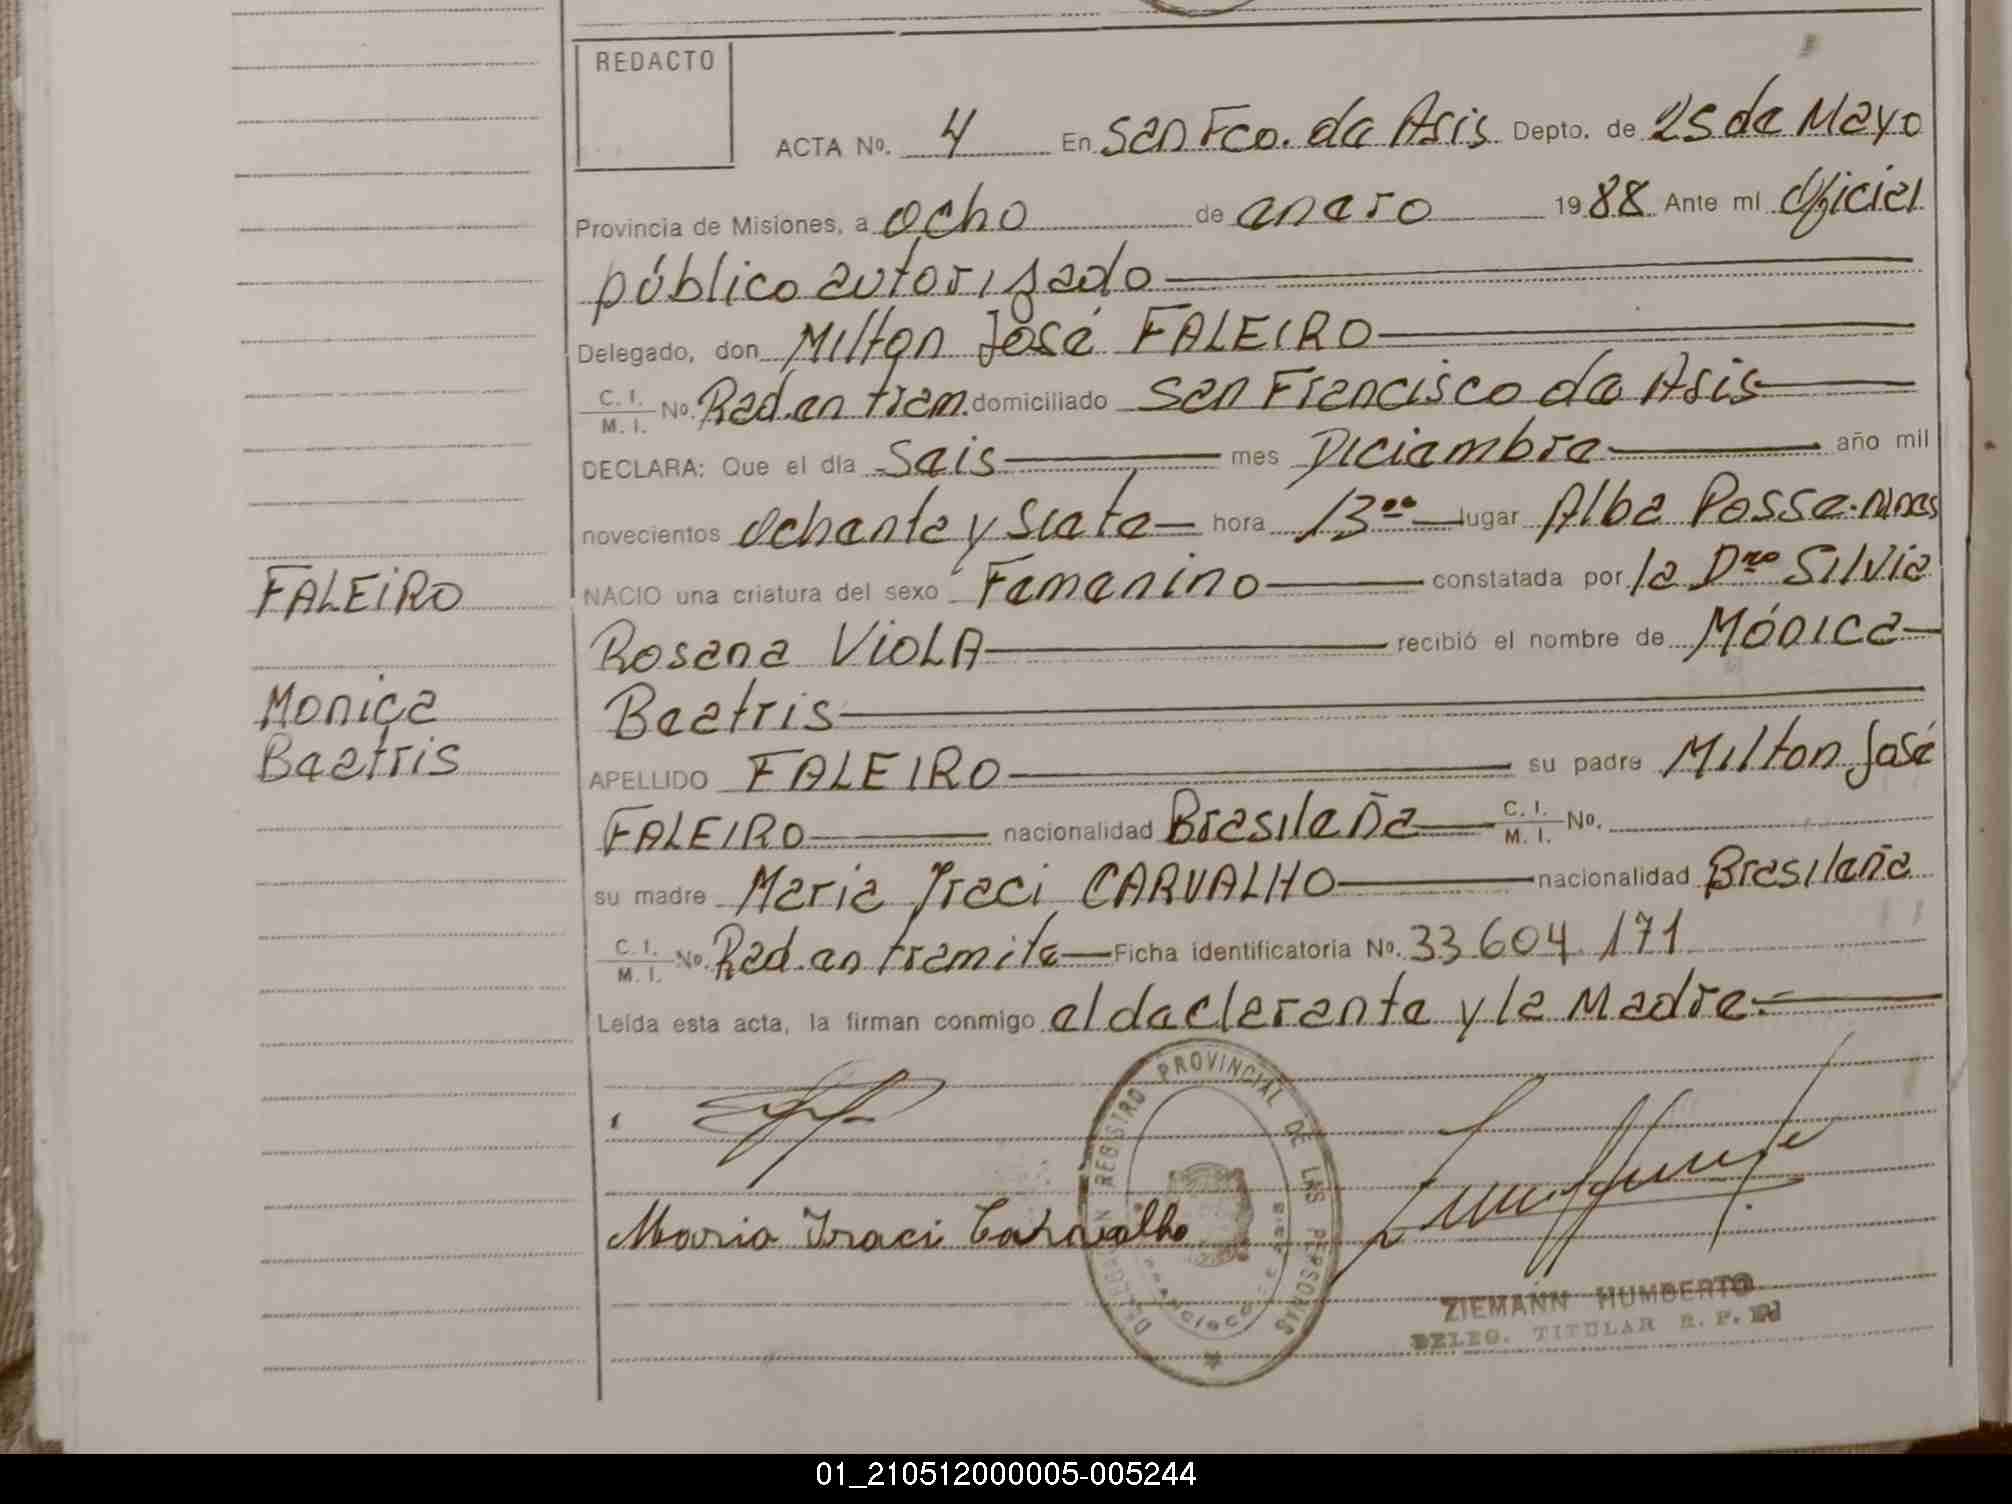 REDACTO
ACTA Nº. 4 En San Fco. de Asis Depto. de 25 de Mayo
Provincia de Misiones, a ocho de enero 1988 Ante mi Oficial
público autorizado
Delegado, don Milton José FALEIRO
C. I. / M. I. Nº. Rad. en tram. domiciliado San Francisco de Asis
DECLARA: Que el día seis mes Diciembre año mil
novecientos ochenta y siete hora 13 ºº lugar Alba Posse. Mnes
NACIO una criatura del sexo Femenino constatada por la Dra Silvia
Rosana VIOLA recibió el nombre de Mónica
Beatris
APELLIDO FALEIRO su padre Milton José
FALEIRO nacionalidad Brasileña C. I. / M. I. Nº.
su madre Maria Iraci CARVALHO nacionalidad Brasileña
C. I. / M. I. Nº. Rad. en tramite Ficha identificatoria Nº. 33 604 171
Leída esta acta, la firman conmigo el declarante y la Madre.
FALEIRO
Monica
Beatris
REGISTRO PROVINCIAL DE LAS PERSONAS
Maria Iraci Carvalho
ZIEMANN HUMBERTO
DELEG. TITULAR R. P. P.
01_210512000005-005244